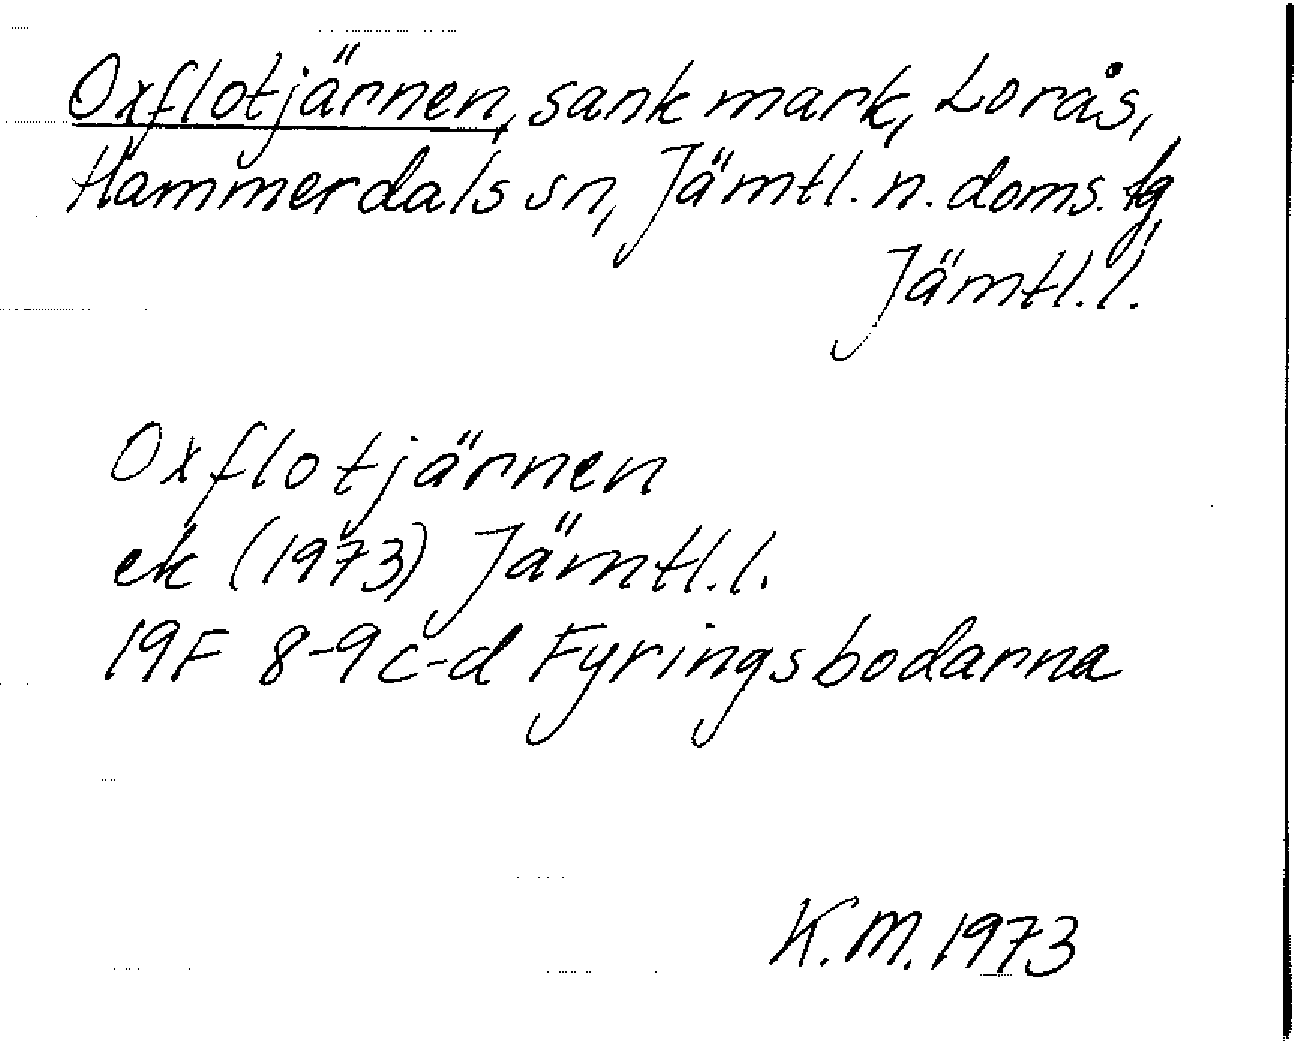 Oxflotjärnen, sank mark, Lorås,
Hammerdals sn, Jämtl. n. doms. tg,
Jämtl. l.
Oxflotjärnen
ek (1973) Jämtl. l.
19F 8-9c-d Fyringsbodarna
K.M. 1973